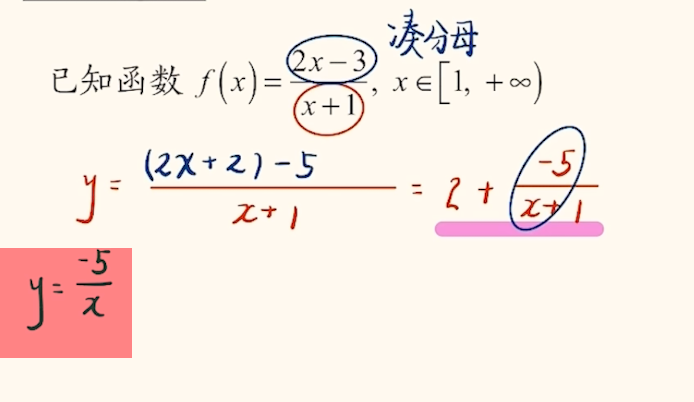 凑分母
已知函数 f(x)=\frac{2x-3}{x+1}, x∈[1, +∞)
y = \frac{(2x+2)-5}{x+1} = 2 + \frac{-5}{x+1}
y = \frac{-5}{x}